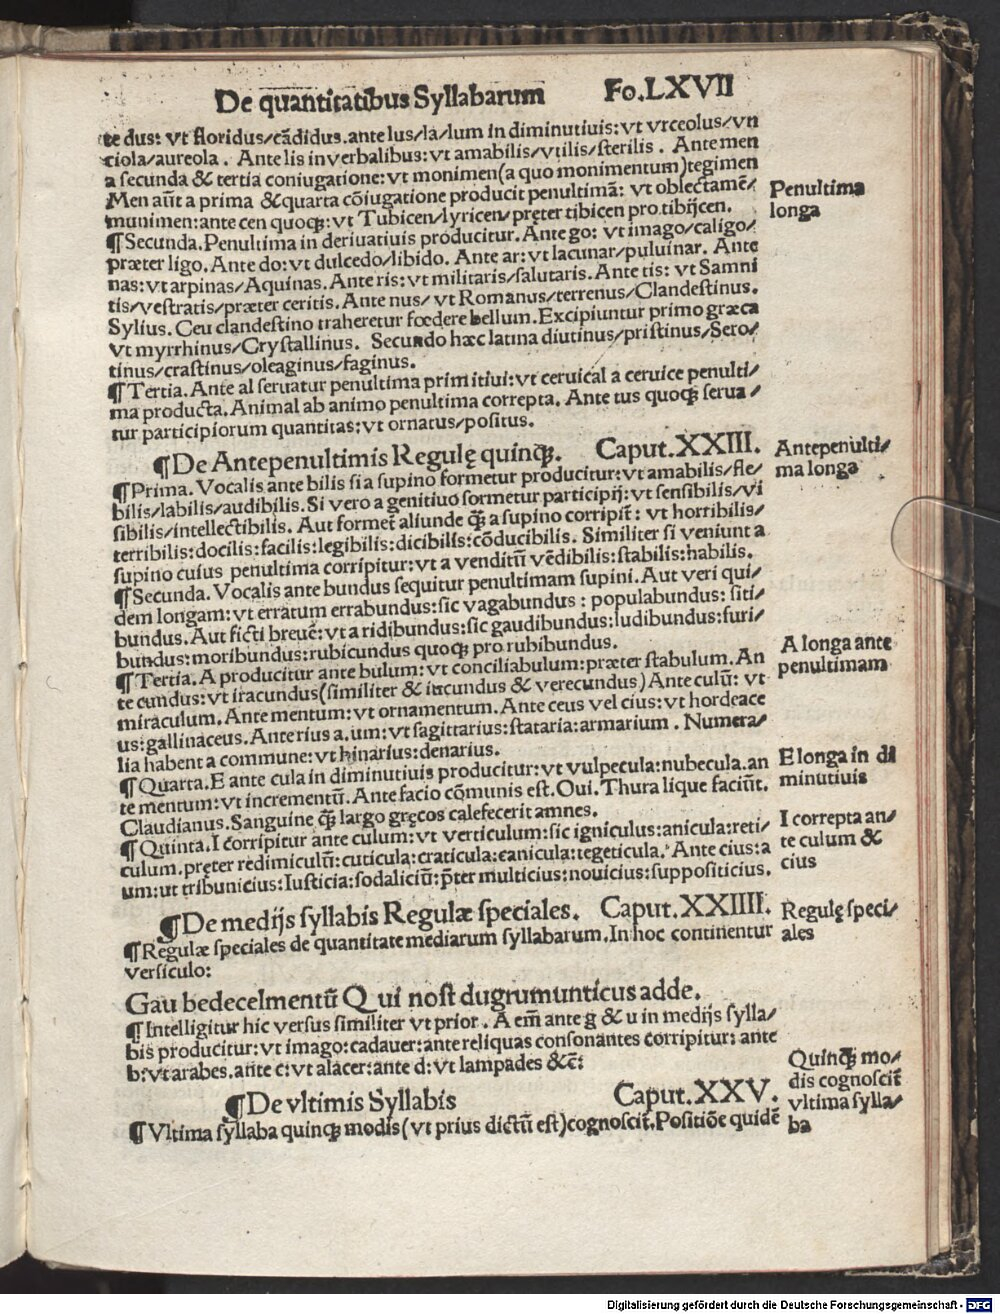 De quantitatibus Syllabarum Fo.LXVII
te dus: vt floridus/cãdidus.ante lus/la/lum in diminutiuis: vt vrceolus/vn
ciola/aureola. Ante lis in verbalibus: vt amabilis/vtilis/sterilis. Ante men
a secunda & tertia coniugatione: vt monimen(a quo monimentum)tegimen
Men aũt a prima & quarta cõiugatione producit penultimã: vt oblectamẽ/
munimen: ante cen quoqȝ: vt Tubicen/lyricen/pręter tibicen pro tibijcen.
Penultima
longa
¶Secunda. Penultima in deriuatiuis producitur. Ante go: vt imago/caligo/
præter ligo. Ante do: vt dulcedo/libido. Ante ar: vt lacunar/puluinar. Ante
nas: vt arpinas/Aquinas. Ante ris: vt militaris/salutaris. Ante tis: vt Samni
tis/vestratis/præter ceritis. Ante nus/ vt Romanus/terrenus/Clandestinus.
Sylius. Ceu clandestino traheretur fœdere bellum. Excipiuntur primo græca
vt myrrhinus/Crystallinus. Secundo hæc latina diutinus/pristinus/Sero/
tinus/crastinus/oleaginus/faginus.
¶Tertia. Ante al seruatur penultima primitiui: vt ceruical a ceruice penulti/
ma producta. Animal ab animo penultima correpta. Ante tus quoqȝ serua/
tur participiorum quantitas: vt ornatus/positus.
¶De Antepenultimis Regulę quinqȝ. Caput.XXIII.
Antepenulti/
ma longa
¶Prima. Vocalis ante bilis si a supino formetur producitur: vt amabilis/fle/
bilis/labilis/audibilis. Si vero a genitiuo formetur participij: vt sensibilis/vi
sibilis/intellectibilis. Aut formet̃ aliunde qȝ̃ a supino corripit̃: vt horribilis/
terribilis: docilis: facilis: legibilis: dicibilis: cõducibilis. Similiter si veniunt a
supino cuius penultima corripitur: vt a venditũ vẽdibilis: stabilis: habilis.
¶Secunda. Vocalis ante bundus sequitur penultimam supini. Aut veri qui/
dem longam: vt erratum errabundus: sic vagabundus: populabundus: siti/
bundus. Aut ficti breuẽ: vt a ridibundus: sic gaudibundus: ludibundus: furi/
bundus: moribundus: rubicundus quoqȝ pro rubibundus.
A longa ante
penultimam
¶Tertia. A producitur ante bulum: vt conciliabulum: præter stabulum. An
te cundus: vt iracundus(similiter & iucundus & verecundus) Ante culũ: vt
miraculum. Ante mentum: vt ornamentum. Ante ceus vel cius: vt hordeace
us: gallinaceus. Ante rius a.um: vt sagittarius: stataria: armarium. Numera/
lia habent a commune: vt binarius: denarius.
¶Quarta. E ante cula in diminutiuis producitur: vt vulpecula: nubecula. an
te mentum: vt incrementũ. Ante facio cõmunis est. Oui. Thura lique faciũt.
Claudianus. Sanguine qȝ̃ largo gręcos calefecerit amnes.
E longa in di
minutiuis
¶Quinta. I corripitur ante culum: vt verticulum: sic igniculus: anicula: reti/
culum. pręter redimiculũ: cuticula: craticula: canicula: tegeticula. Ante cius: a
um: ut tribunicius: Iusticia: sodaliciũ: p̃ter multicius: nouicius: suppositicius.
I correpta an/
te culum &
cius
¶De medijs syllabis Regulæ speciales. Caput.XXIIII.
Regulę speci/
ales
¶Regulæ speciales de quantitate mediarum syllabarum. In hoc continentur
versiculo:
Gau bedecelmentũ Qui nost dugrumunticus adde.
¶Intelligitur hic versus similiter vt prior. A em̃ ante g & u in medijs sylla/
bis producitur: vt imago: cadauer: ante reliquas consonantes corripitur: ante
b: vt arabes. ante c: vt alacer: ante d: vt lampades &c̃:
¶De vltimis Syllabis Caput.XXV.
¶Vltima syllaba quinqȝ modis(vt prius dictũ est)cognoscit̃. Positiõe quidẽ
Quinqȝ mo/
dis cognoscit̃
vltima sylla/
ba
Digitalisierung gefördert durch die Deutsche Forschungsgemeinschaft - DFG